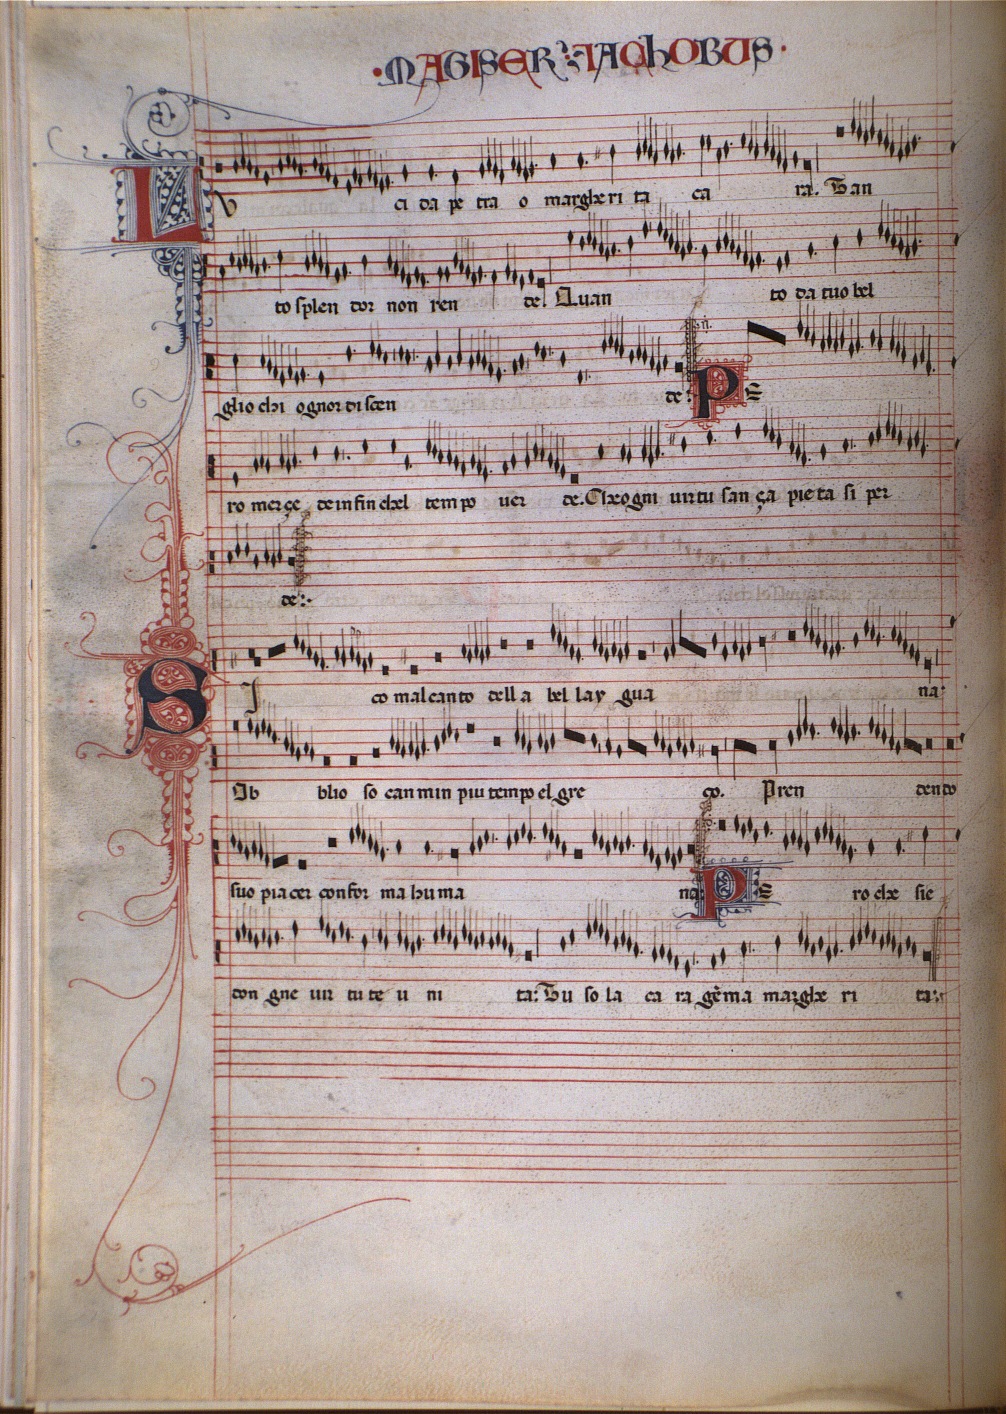 ·MAGISER·IACHOBUS·
LV ci da pe tra o margheri ta ca ra. Tan
to splen dor non ren de. Quan to da tuo bel
glio chi ognor di scen de: PE
ro merçe de in fin chel tempo ver de. Che ogni virtu san ça pieta si per
de:
SI co mal canto della bel lay gua na:
Ib blio so can min piu tempo el gre co. Pren dendo
suo piacer con for ma huma na: PE ro che sie
con gne vir tute u ni ta: Tu so la ca ra gēma marghe ri ta: